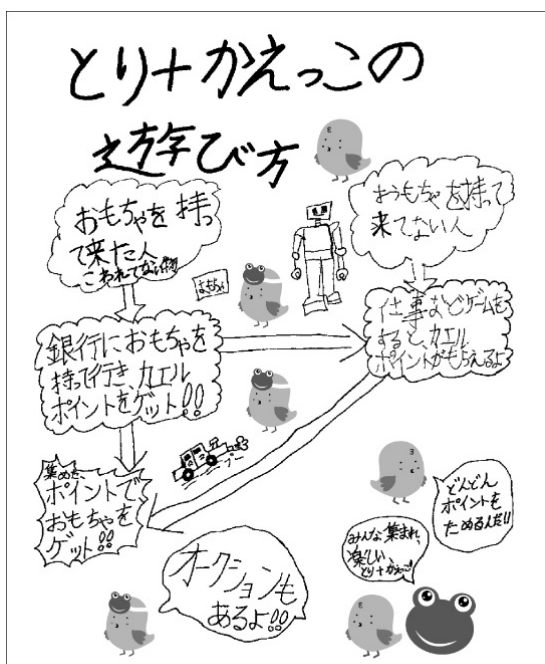 とり+かえっこの
遊び方
おもちゃを持っ
て来た人
こわれてない物
おうもちゃを持って
来てない人
おもちゃ
銀行におもちゃを
持って行き、カエル
ポイントをゲット!!
仕事などゲームを
すると、カエル
ポイントがもらえるよ
集めた
ポイントで
おもちゃを
ゲット!!
ブー
どんどん
ポイントを
ためるんだ!!
オークションも
あるよ!!
みんな集まれ、
楽しい、
とり+かえっこ!